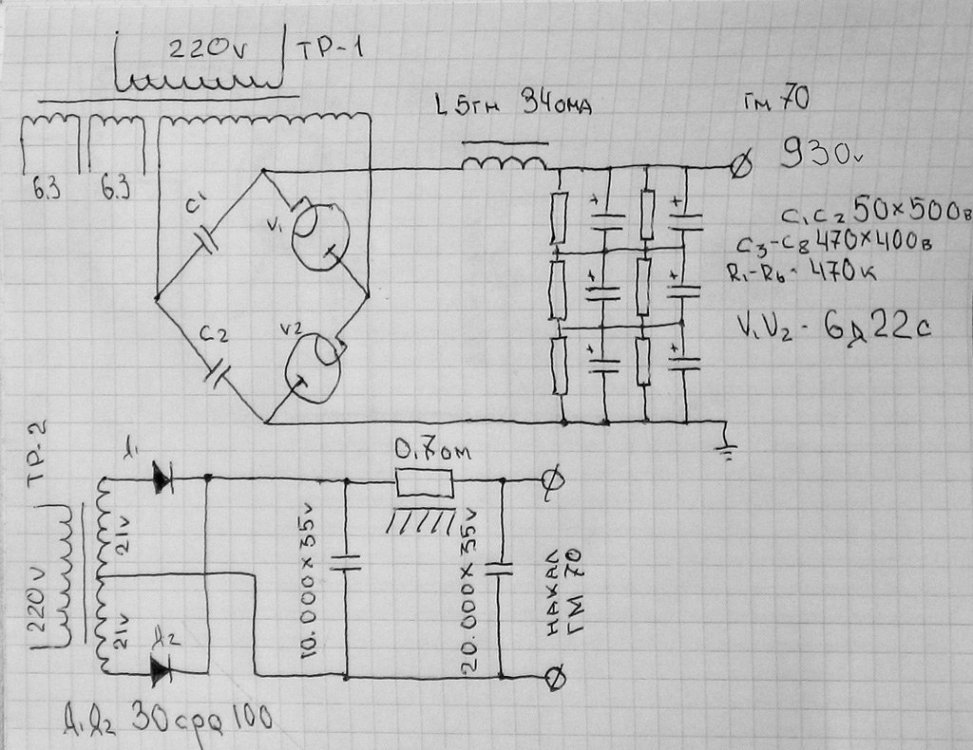 220v ТР-1
L 5гн 340мд гм 70
930v
6.3 6.3
C1
V1
C1 C2 50×500в
C3-C8 470×400в
R1-R6 - 470к
C2
V2
V1 V2 - 6д22с
ТР-2
220v
21v
21v
Д1
Д2
0,7ом
10.000×35v
20.000×35v
НАКАЛ
ГМ 70
Д1 Д2 30cpq100